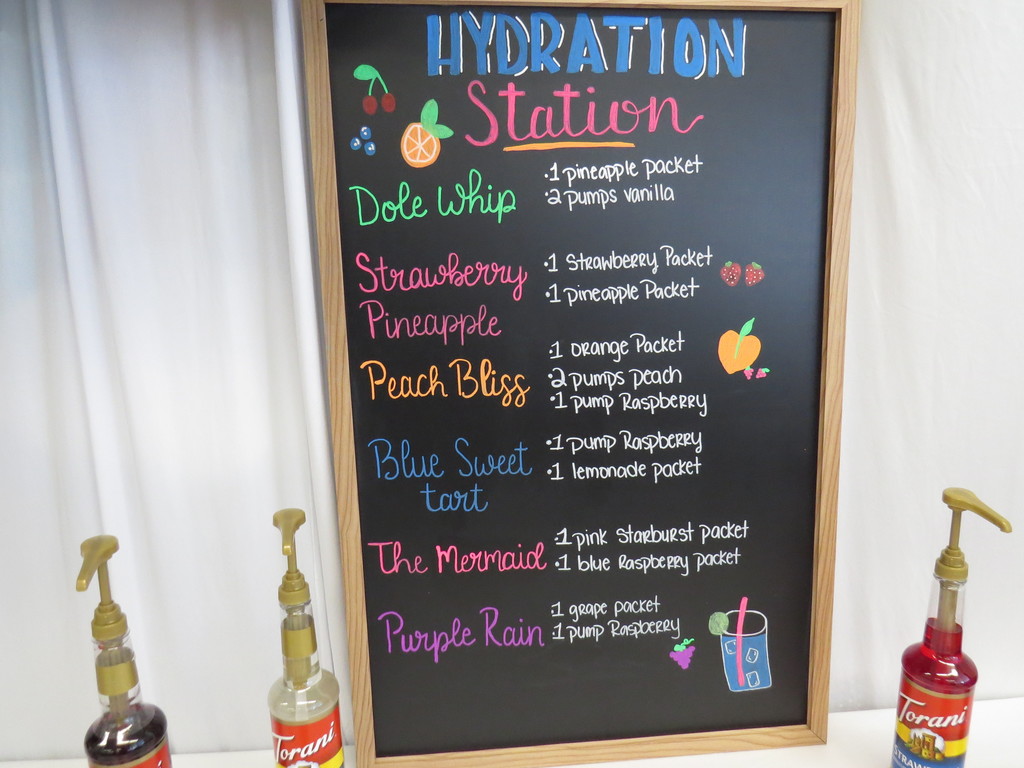 HYDRATION
Station
Dole Whip
·1 pineapple packet
·2 pumps vanilla
Strawberry
Pineapple
·1 Strawberry Packet
·1 pineapple Packet
Peach Bliss
·1 orange Packet
·2 pumps peach
·1 pump Raspberry
Blue Sweet
tart
·1 pump Raspberry
·1 lemonade packet
The Mermaid
·1 pink starburst packet
·1 blue Raspberry packet
Purple Rain
·1 grape packet
·1 pump Raspberry
Torani
Torani